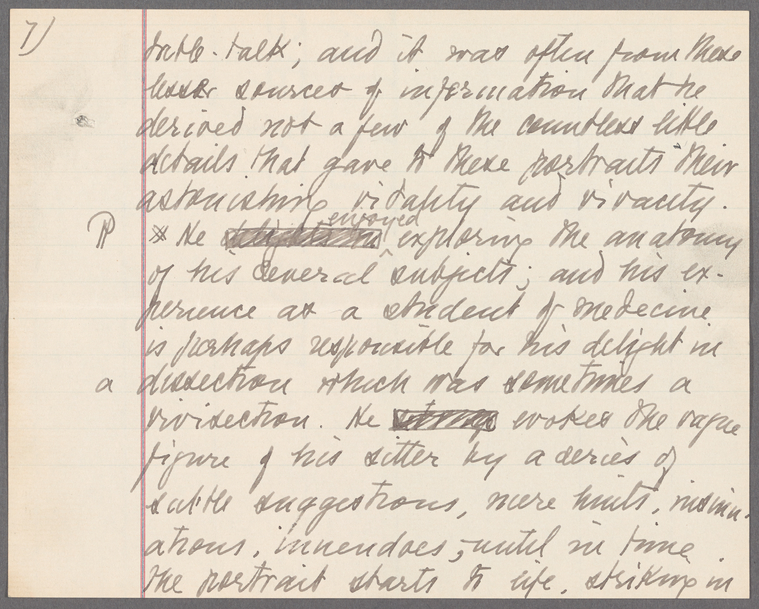 7)
table-talk; and it was often from these
lesser sources of information that he
derived not a few of the countless little
details that gave to these portraits their
astonishing vitality and vivacity.
enjoyed
He exploring the anatomy
of his several subjects; and his ex-
perience as a student of medecine
is perhaps responsible for his delight in
a dissection which was sometimes a
vivisection. He evokes the vague
figure of his sitter by a series of
subtle suggestions, mere hints, insinu-
ations, innendoes, until in time
the portrait starts to life, striking in